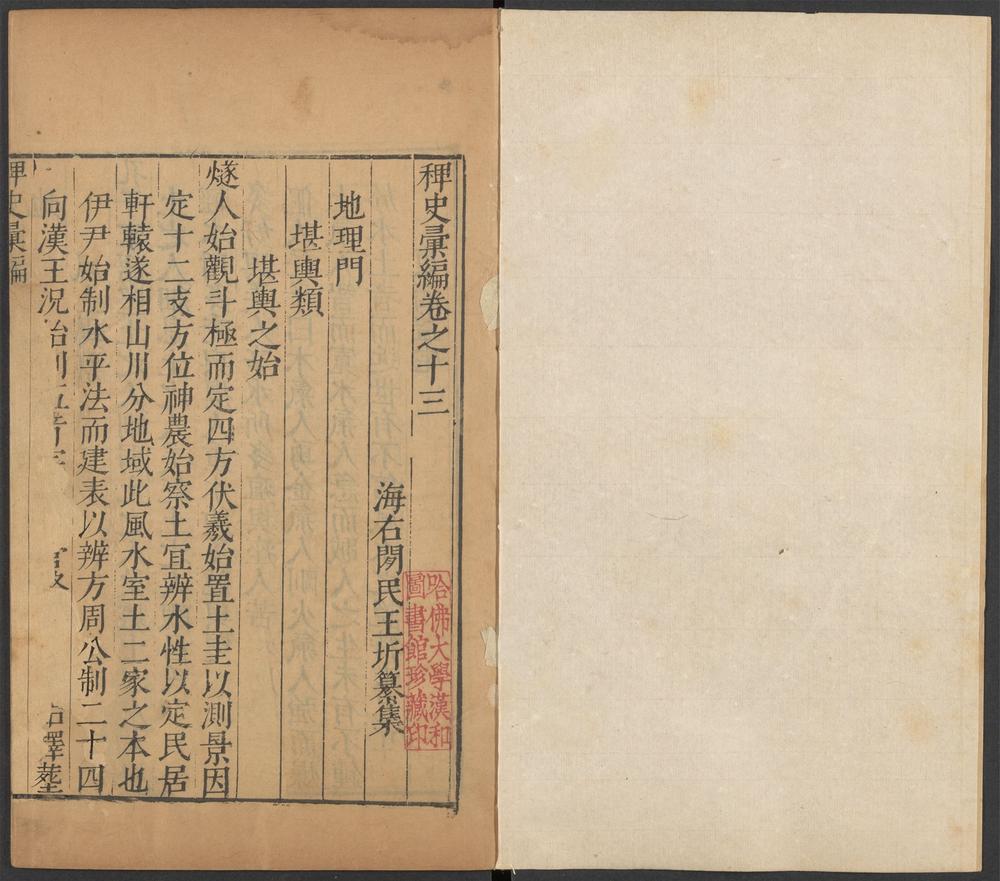 稗史彙編卷之十三
海右閒民王圻纂集
哈佛大學漢和
圖書館珍藏印
地理門
堪輿類
堪輿之始
燧人始觀斗極而定四方伏羲始置土圭以測景因
定十二支方位神農始察土宜辨水性以定民居
軒轅遂相山川分地域此風水室土二家之本也
伊尹始制水平法而建表以辨方周公制二十四
向漢王況始制五音
擇葬
稗史彙編